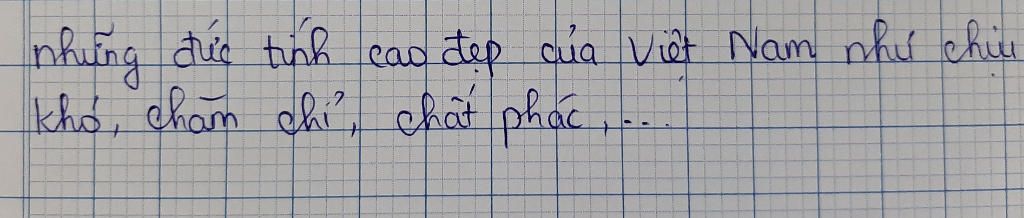 những đức tính cao đẹp của Việt Nam như chịu
khó, chăm chỉ, chất phác,...